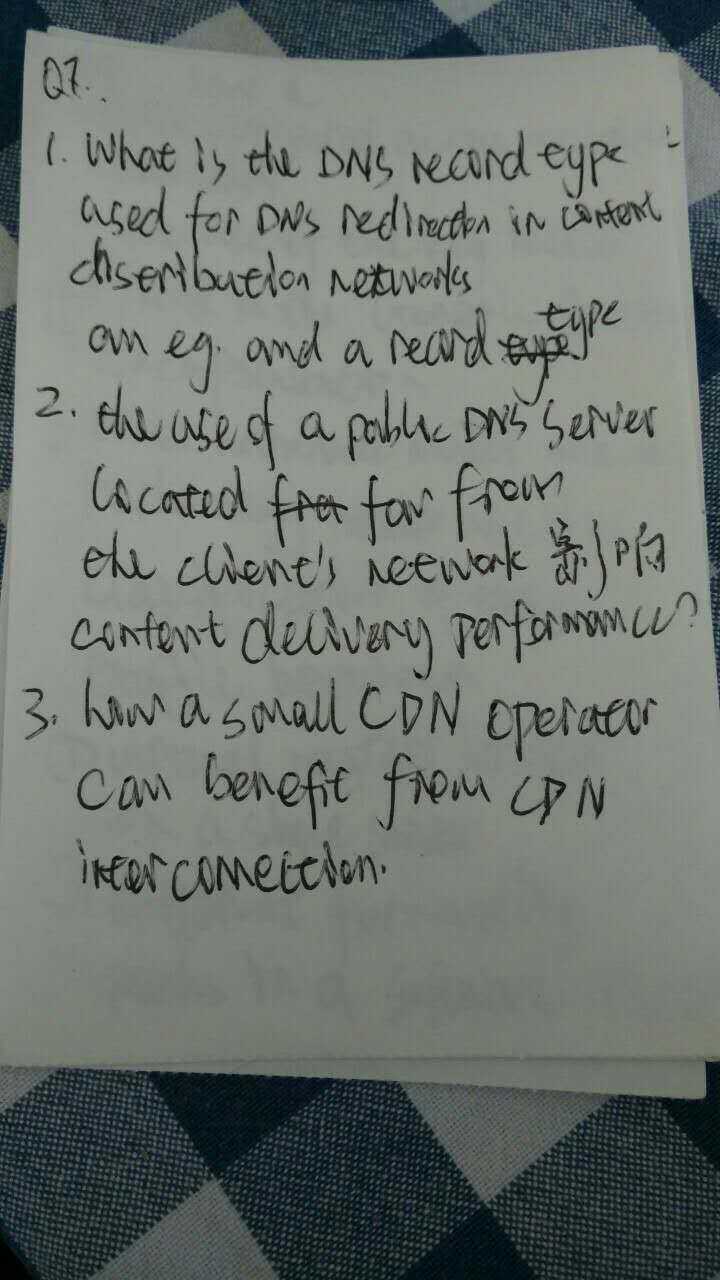 Q7.
1. What is the DNS record type
used for DNS redirection in content
distribution networks
an eg. and a record type
2. the use of a public DNS server
located far from
the client's network 影响
content delivery performance?
3. how a small CDN operator
can benefit from CDN
interconnection.